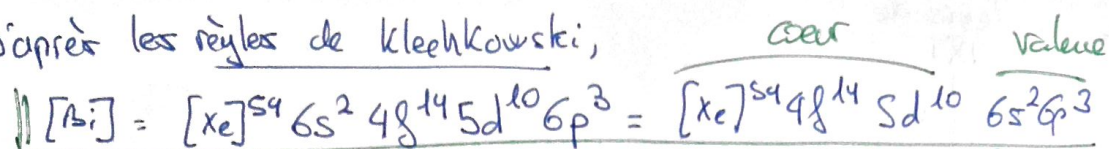 d'après les règles de Klechkowski, coeur valence
[Bi] = [Xe]⁵⁴ 6s² 4f¹⁴ 5d¹⁰ 6p³ = [Xe]⁵⁴ 4f¹⁴ 5d¹⁰ 6s² 6p³